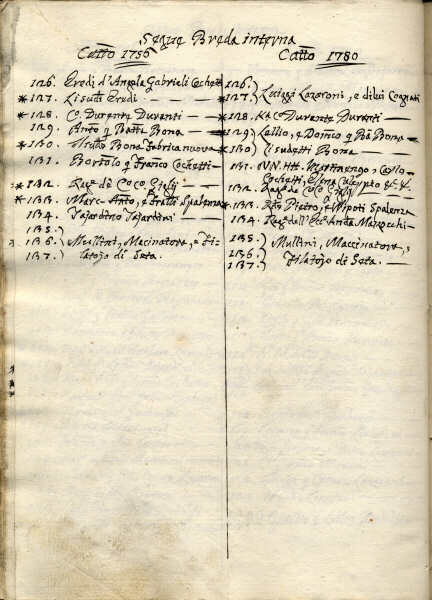 Segue Breda interna
Catto 1750
126. Eredi d'Angola Gabrieli Cochetti
*127. Li sudti Eredi
*128. Co. Durante Duranti
129. Anto q Batta Bona
*130. Bona Fabrica nuova
131. Bortolo q Franco Cochetti
*132. Ragn de Coco Gigli
*133. Marc Anto, e Fratlli Spalenza
134. Tajardino Tajardini
135.)
136.) Mollini, Macinatore, e Fi-
137.) latojo di Seta.
Catto 1780
126.)
*127.) Luiggi Lazaroni, e di lui Cognati
*128. Co Durante Duranti
*129.) Lellio, e Domco q Ba Bona
*130.) Li sudetti Bona
131. NN. HH. Martinengo, Carlo
Cochetti, &. &.
132. Ragn de Coco Gigli
*133. Pietro, e Nipoti Spalenza
134. Ragn dall' Anda Marocchi
135.)
136.) Mullini, Maccinatore,
137.) Filatojo di Seta.